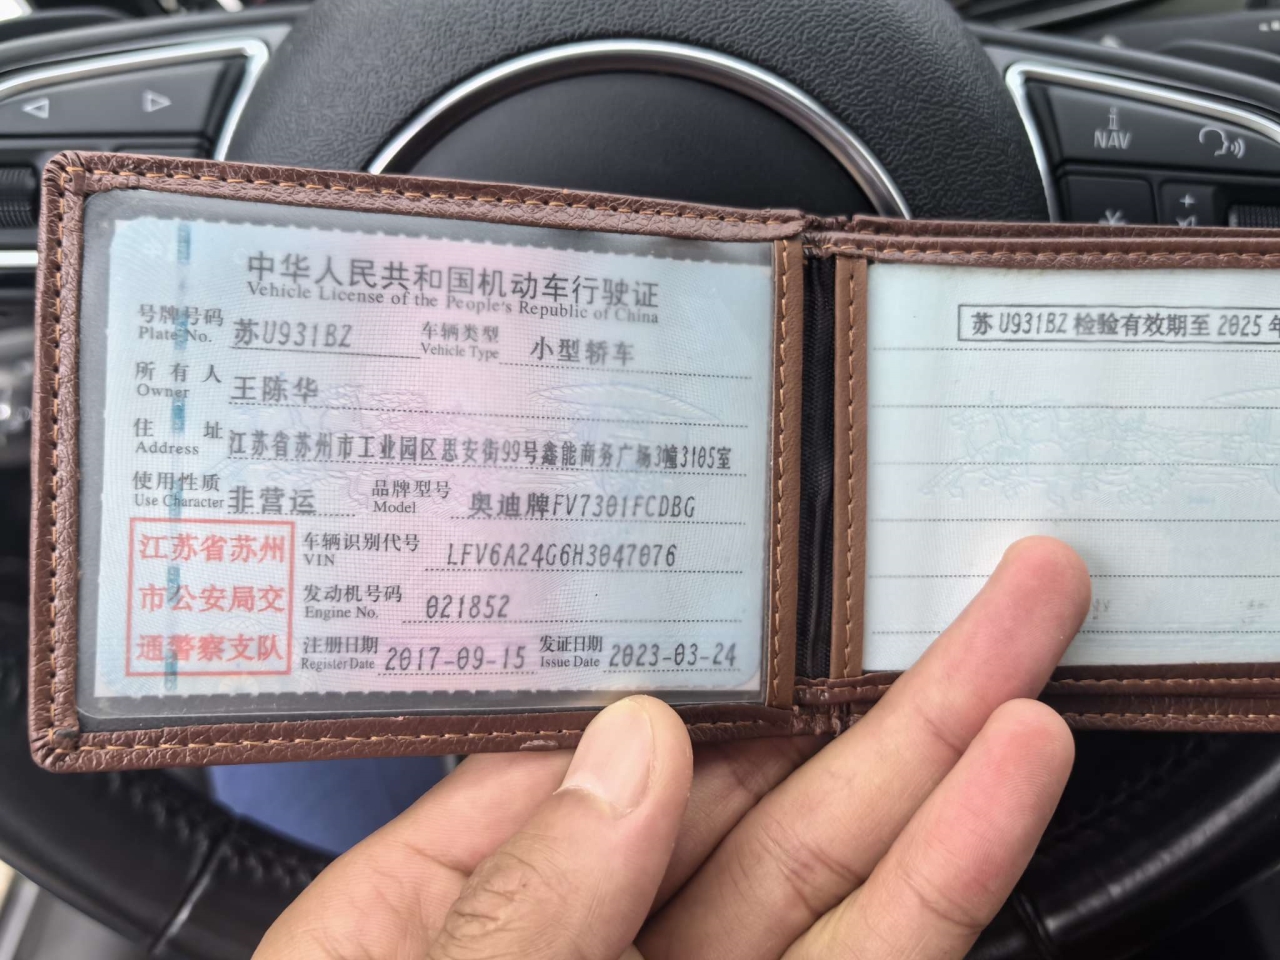 NAV
中华人民共和国机动车行驶证
Vehicle License of the People's Republic of China
号牌号码 苏U931BZ 车辆类型 小型轿车
Plate No. Vehicle Type
所有人 王陈华
Owner
住址 江苏省苏州市工业园区思安街99号鑫能商务广场3幢3105室
Address
使用性质 非营运 品牌型号 奥迪牌FV7301FCDBG
Use Character Model
江苏省苏州
市公安局交
通警察支队
车辆识别代号 LFV6A24G6H3047076
VIN
发动机号码 021852
Engine No.
注册日期 2017-09-15 发证日期 2023-03-24
Register Date Issue Date
苏U931BZ检验有效期至2025年